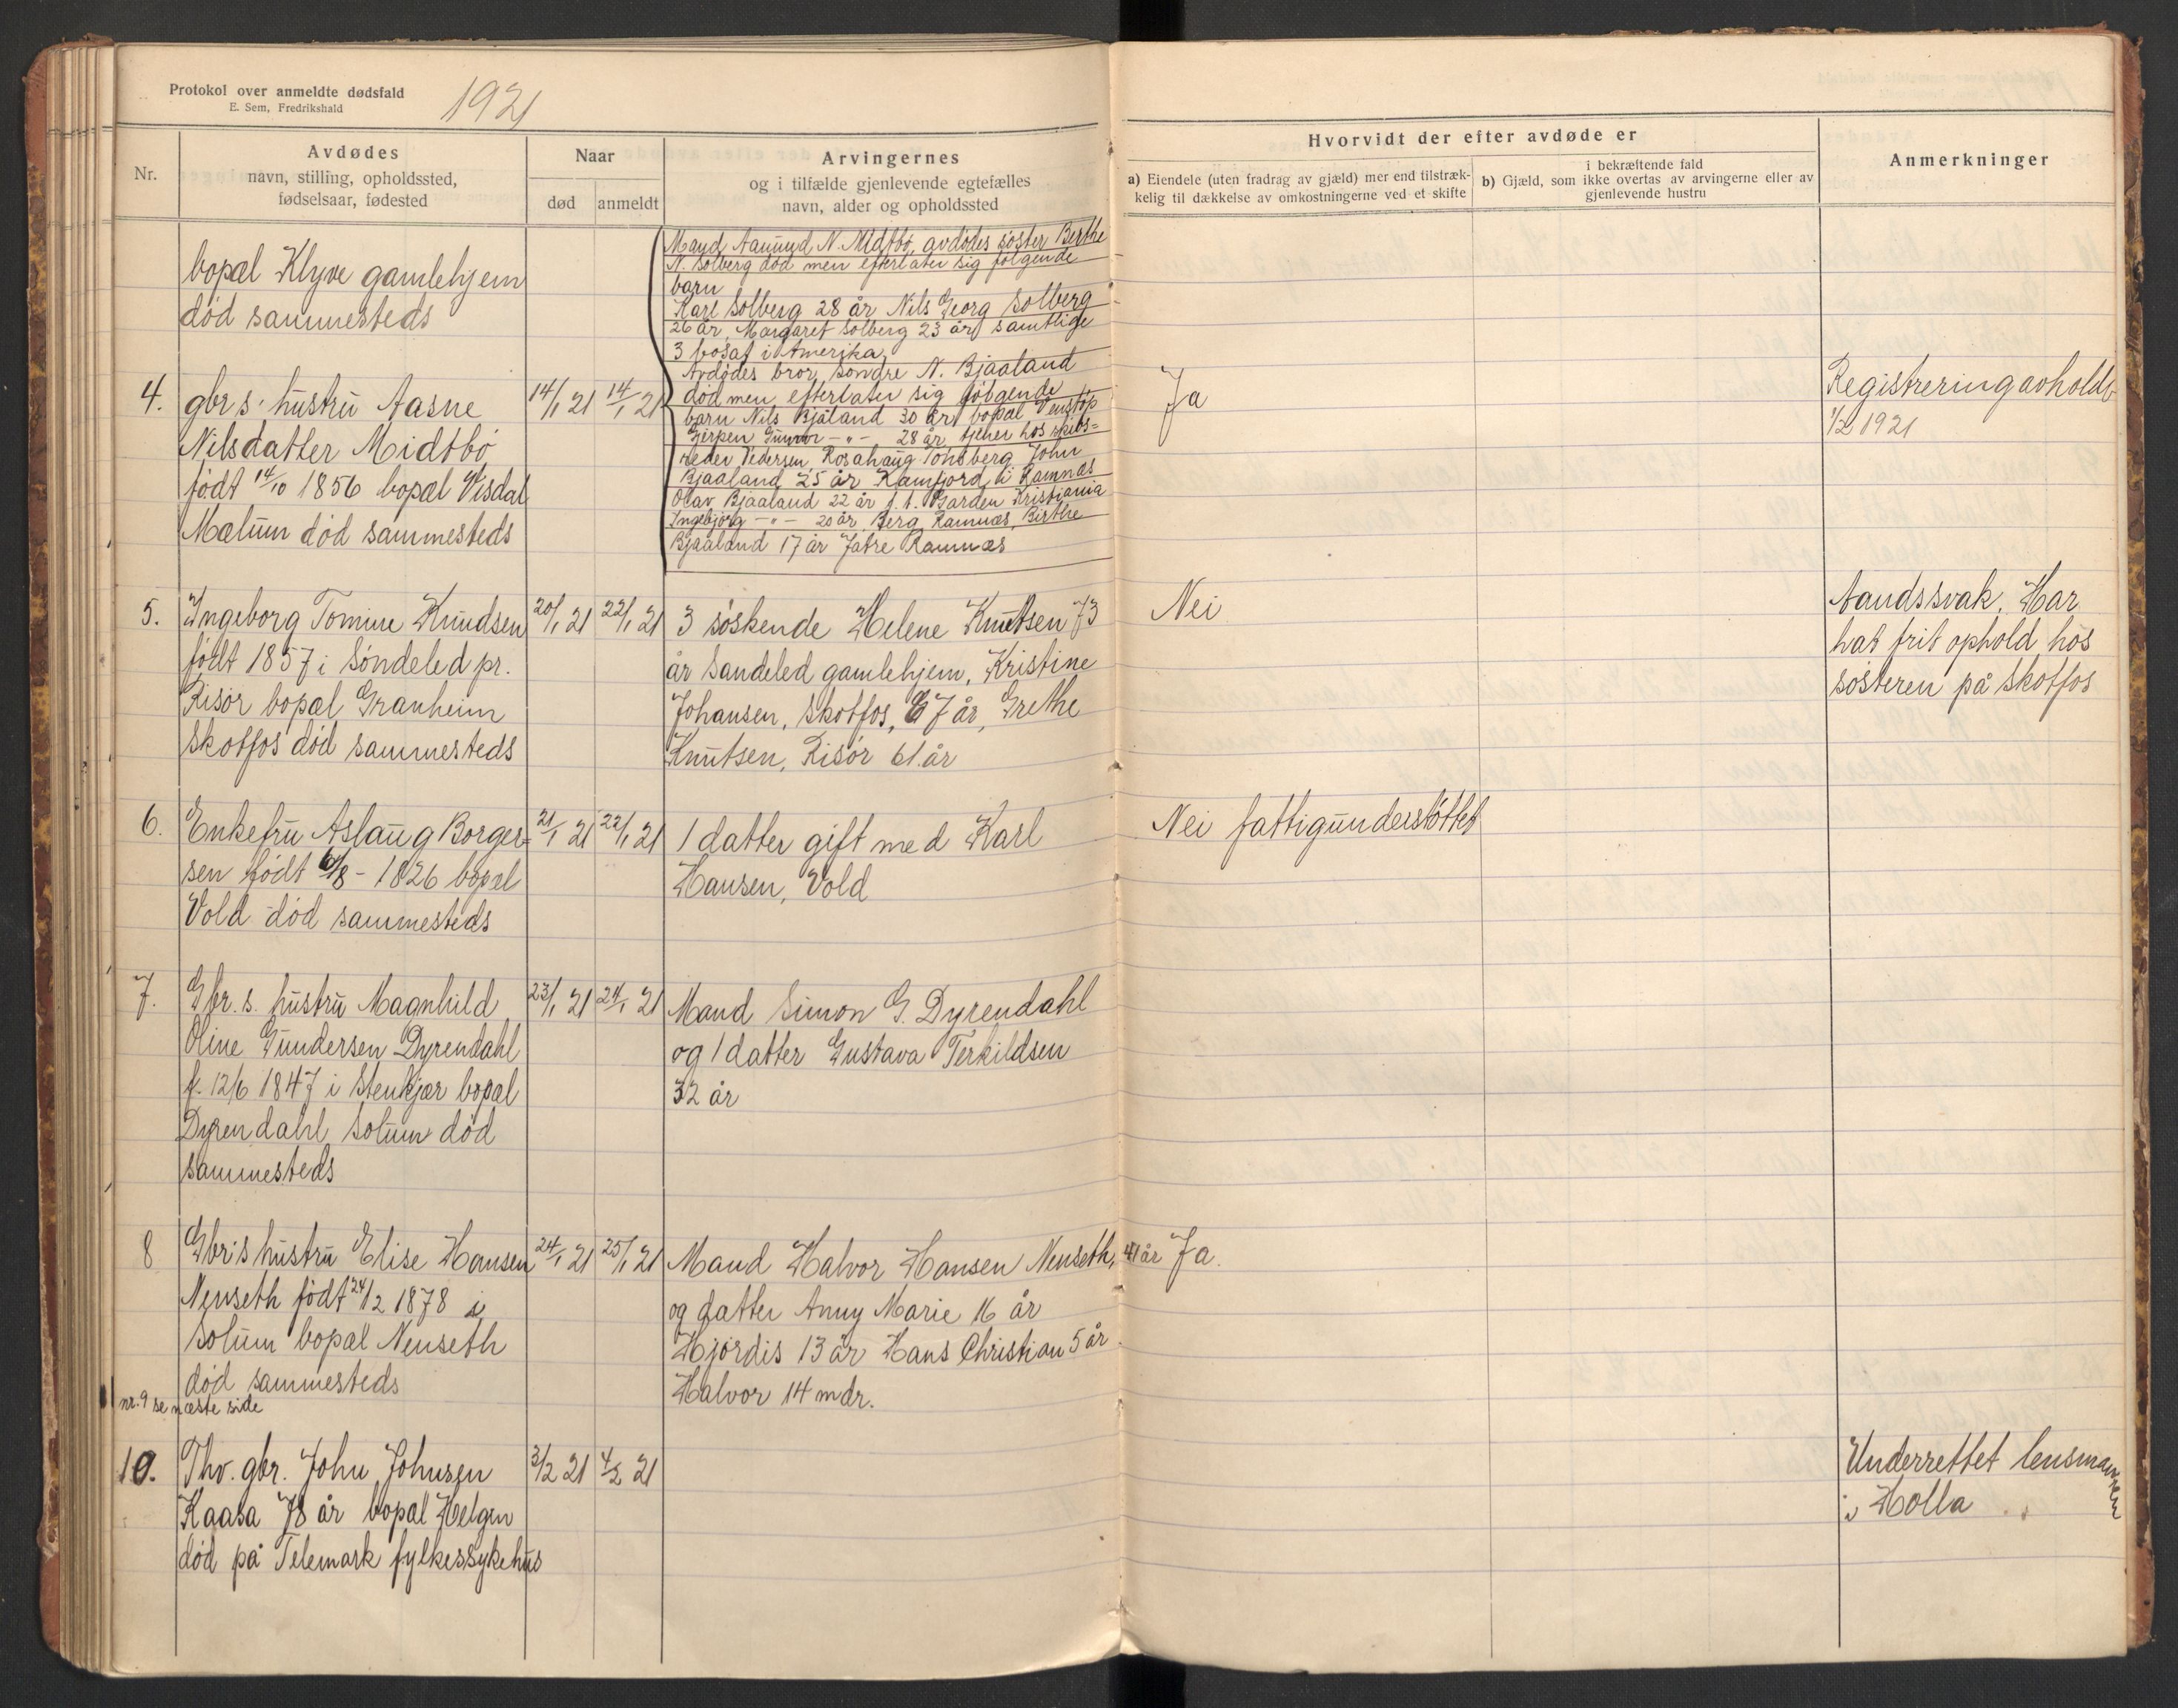 Protokol over anmeldte dødsfald
E. Sem, Fredrikshald
1921
Nr.
Avdødes
navn, stilling, opholdssted,
fødselsaar, fødested
Naar
død
anmeldt
Arvingernes
og i tilfælde gjenlevende egtefælles
navn, alder og opholdssted
Hvorvidt der efter avdøde er
a) Eiendele (uten fradrag av gjæld) mer end tilstræk-
kelig til dækkelse av omkostningerne ved et skifte
i bekræftende fald
b) Gjæld, som ikke overtas av arvingerne eller av
gjenlevende hustru
Anmerkninger
bopæl Klyve gamlehjem
død sammesteds
4.
gbr s. hustru Aasne
Nilsdatter Midtbø
født 14/10 1856 bopæl Visdal
Mælum død sammesteds
14/1 21
14/1 21
Mand Aamund N. Midtbø, avdødes søster Berthe
N. Solberg død men efterlater sig følgende
barn
Karl Solberg 28 år Nils Georg Solberg
26 år, Margaret Solberg 23 år, samtlige
3 bosat i Amerika,
Avdødes bror, Søndre N. Bjaaland
død men efterlater sig følgende
barn Nils Bjåland 30 år, bopæl Venstøp
Gjerpen Gunnar —"— 28 år tjener hos skibs=
reder Pedersen, Rosahaug Tønsberg John
Bjaaland 25 år Kamfjord i Ramnæs
Olav Bjaaland 22 år f. t. Garden Kristiania
Ingebjørg —"— 20 år, Berg Ramnæs, Birthe
Bjaaland 17 år Jatre Ramnæs
Ja
Registrering avholdt
1/2 1921
5.
Ingeborg Tomine Knudsen
født 1857 i Søndeled pr.
Risør bopæl Granheim
Skotfos død sammesteds
20/1 21
22/1 21
3 søskende Helene Knutsen 73
år Søndeled gamlehjem, Kristine
Johansen, Skotfos, 67 år, Grethe
Knutsen, Risør 61 år
Nei
Aandssvak. Har
hat frit ophold hos
søsteren på Skotfos
6.
Enkefru Aslaug Borger=
sen født 6/8 - 1826 bopæl
Vold død sammesteds
21/1 21
22/1 21
1 datter gift med Karl
Hansen, Vold
Nei fattigunderstøttet
7.
Gbr. s. hustru Magnhild
Oline Gundersen Dyrendahl
f. 12/6 1847 i Stenkjær bopæl
Dyrendahl Solum død
sammesteds
23/1 21
24/1 21
Mand Simon G. Dyrendahl
og 1 datter Gustava Terkildsen
32 år
8
Gbr's hustru Elise Hansen
Nenseth født 24/2 1878 i
Solum bopæl Nenseth
død sammesteds
24/1 21
25/1 21
Mand Halvor Hansen Nenseth, 41 år
og datter Anny Marie 16 år
Hjørdis 13 år Hans Christian 5 år
Halvor 14 mdr.
Ja.
nr. 9 se næste side
10.
Thv. gbr. John Johnsen
Kaasa 78 år bopæl Helgen
død på Telemark fylkessykehus
3/2 21
4/2 21
Underrettet lensmannen
i Holla